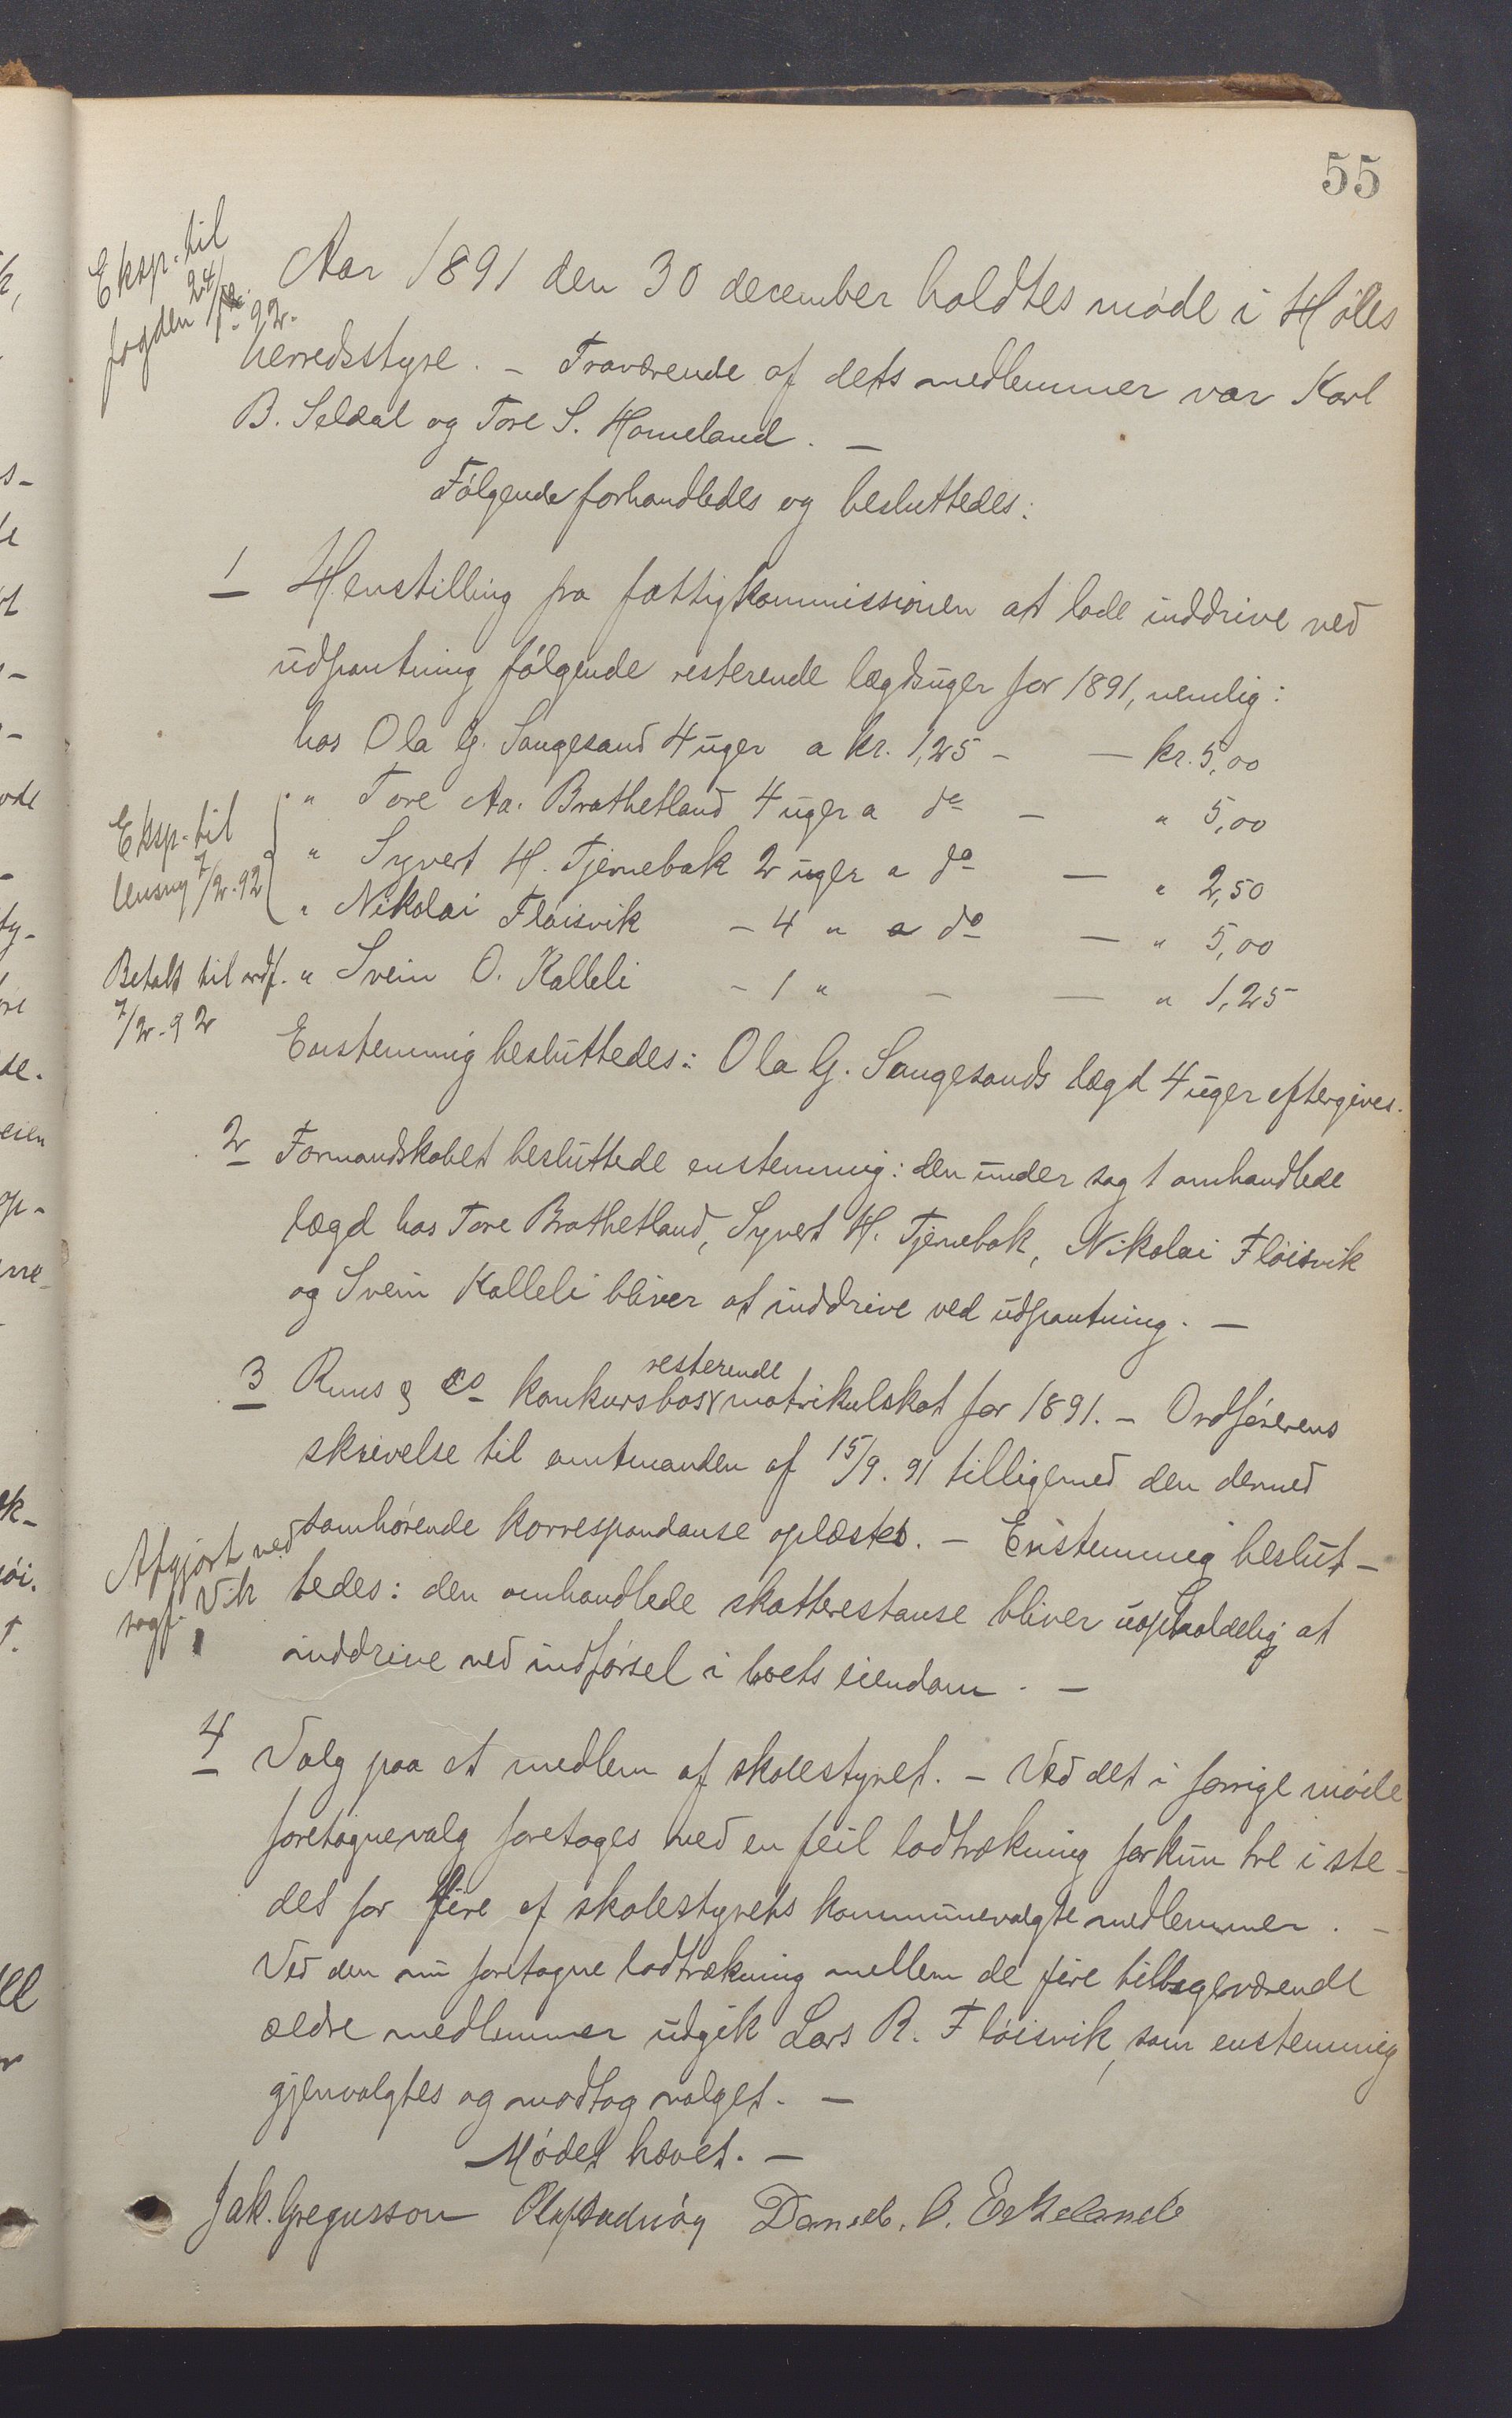 55
Eksp. til
fogden 24/12. 92.
Aar 1891 den 30 december holdtes møde i Høles
herredsstyre. – Fraværende af dets medlemmer var Karl
B. Seldal og Tore S. Homeland. –
Følgende forhandledes og besluttedes:
1 Henstilling fra fattigkommissionen at lade inddrive ved
udpantning følgende resterende lægdsuger for 1891, nemlig:
hos Ola G. Sangesand 4 uger a kr. 1,25 – – kr. 5,00
" Tore Aa. Brathetland 4 uger a do – " 5,00
Eksp. til
lensmg 7/2. 92
" Syvert H. Tjernebak 2 uger a do – " 2,50
" Nikolai Fløisvik – 4 " a do – " 5,00
Betalt til ordf.
7/2. 92
" Svein O. Kalleli – 1 " – – " 1,25
Enstemmig besluttedes: Ola G. Sangesands lægd 4 uger eftergives.
2 Formandskabet besluttede enstemmig: den under sag 1 omhandlede
lægd hos Tore Brathetland, Syvert H. Tjernebak, Nikolai Fløisvik
og Svein Kalleli bliver at inddrive ved udpantning. –
resterende
3 Ruus & co konkursbos matrikulskat for 1891. – Ordførerens
skrivelse til amtmanden af 15/9. 91 tilligemed den dermed
samhørende korrespondanse oplæstes. – Enstemmig beslut-
Afgjort ved
sagf. Vik
tedes: den omhandlede skatterestanse bliver uopholdelig at
inddrive ved indførsel i boets eiendom. –
4 Valg paa et medlem af skolestyret. – Ved det i forrige møde
foretagne valg foretoges ved en feil lodtrækning for kun tre i ste-
det for fire af skolestyrets kommunevalgte medlemmer. –
Ved den nu foretagne lodtrækning mellem de fire tilbageværende
ældre medlemmer udgik Lars R. Fløisvik, som enstemmig
gjenvalgtes og modtog valget. –
Mødet hævet. –
Jak. Gregusson Daniel. O. Eskeland